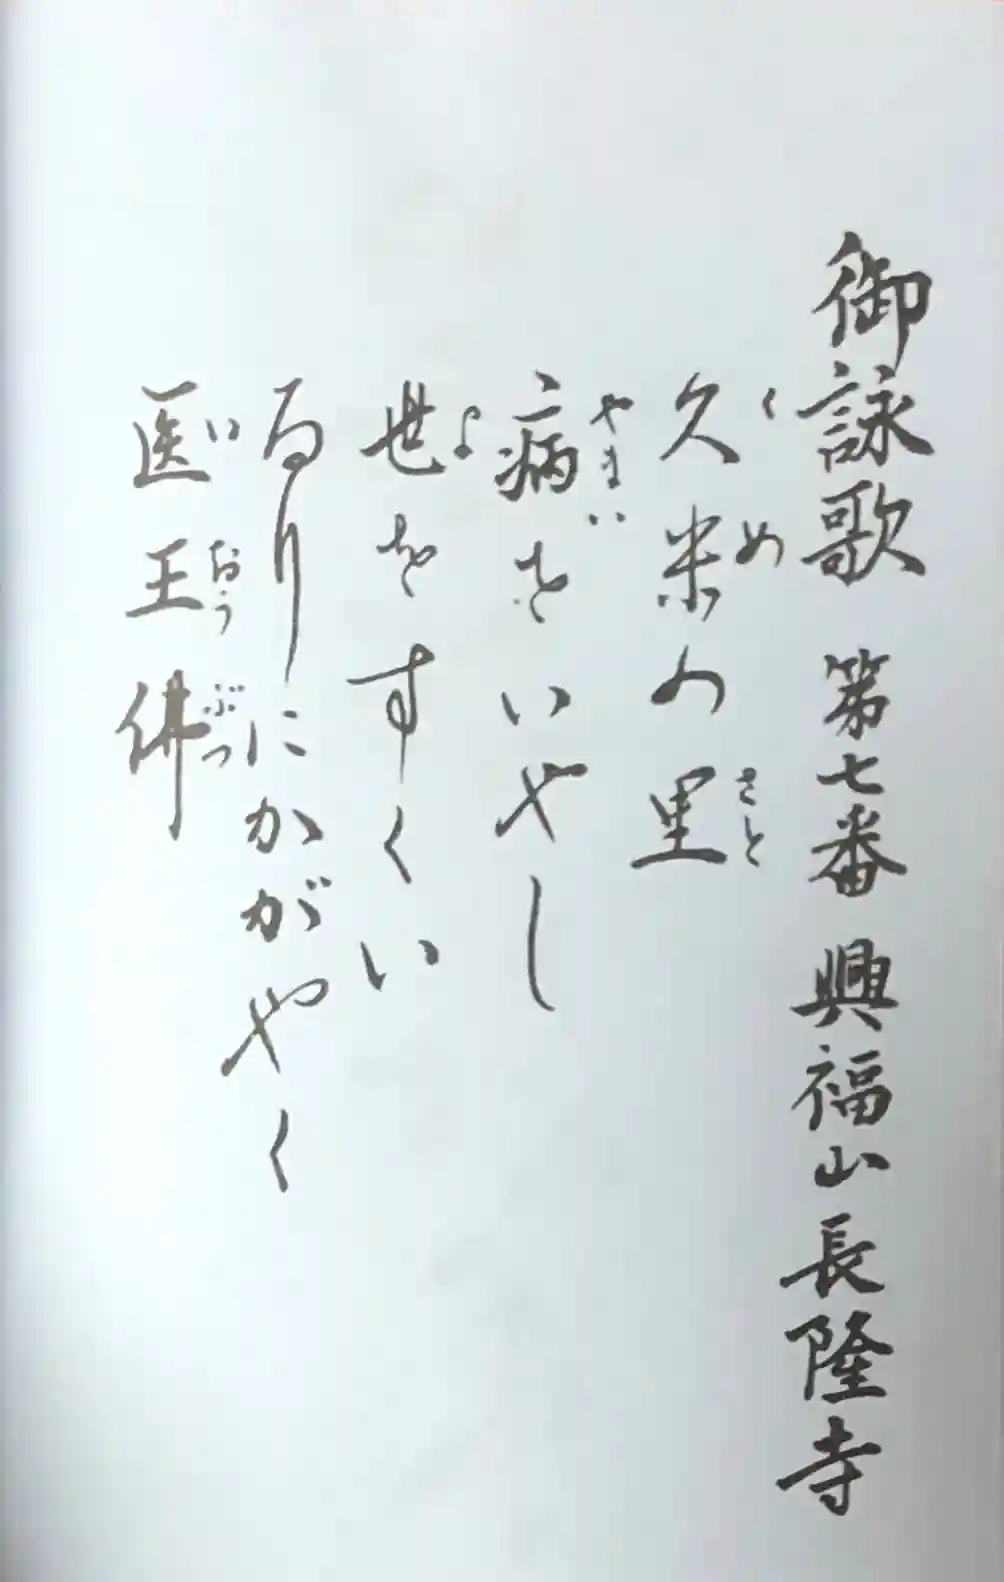 御詠歌 第七番 興福山長隆寺
久米の里
病をいやし
世をすくい
るりにかがやく
医王佛